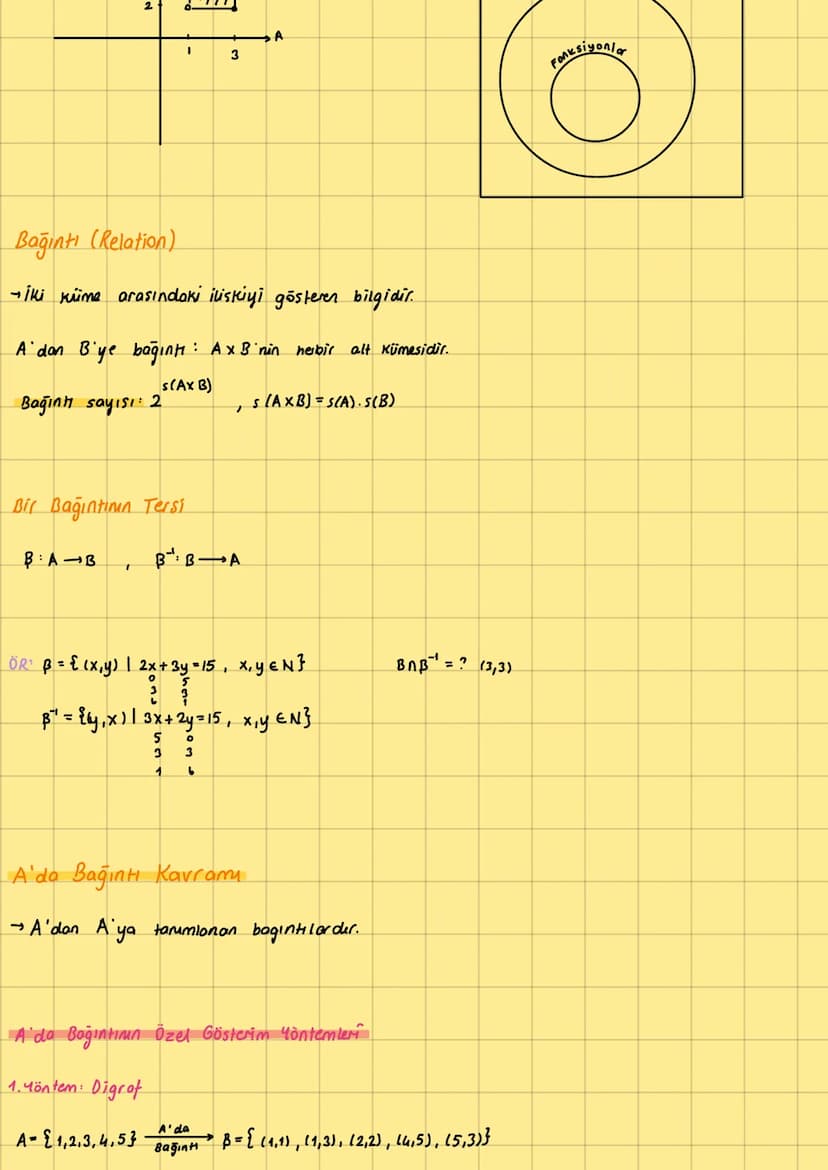 2
A
1
3
Fonksiyonlar
Bağıntı (Relation)
→ İki küme arasındaki ilişkiyi gösteren bilgidir.
A'dan B'ye bağıntı : A x B'nin herbir alt kümesidir.
Bağıntı sayısı: 2^s(A x B) , s(A x B) = s(A) . s(B)
Bir Bağıntının Tersi
β : A → B , β⁻¹ : B → A
ÖR: β = { (x,y) | 2x + 3y = 15 , x,y ∈ N } β ∩ β⁻¹ = ? (3,3)
0 5
3 3
6 1
β⁻¹ = {(y,x) | 3x + 2y = 15 , x,y ∈ N}
5 0
3 3
1 6
A'da Bağıntı Kavramı
→ A'dan A'ya tanımlanan bagıntılardır.
A'da Bağıntının Özel Gösterim Yöntemleri
1. Yöntem: Digraf
A = { 1,2,3,4,5 } A'da Bağıntı → β = { (1,1) , (1,3), (2,2) , (4,5), (5,3) }